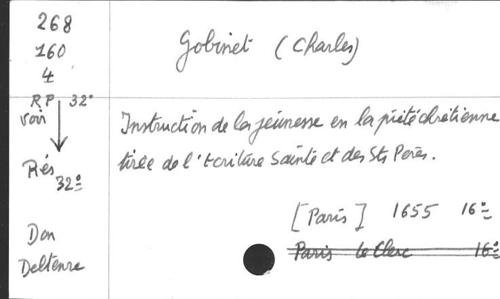 268
160
4
RP 32°
voir
Rés
32°
Don
Deltenre
Gobinet (Charles)
Instruction de la jeunesse en la piété chrétienne
tirée de l'Ecriture Sainte et des Sts Pères.
[Paris] 1655 16°
Paris Le Clerc 16°